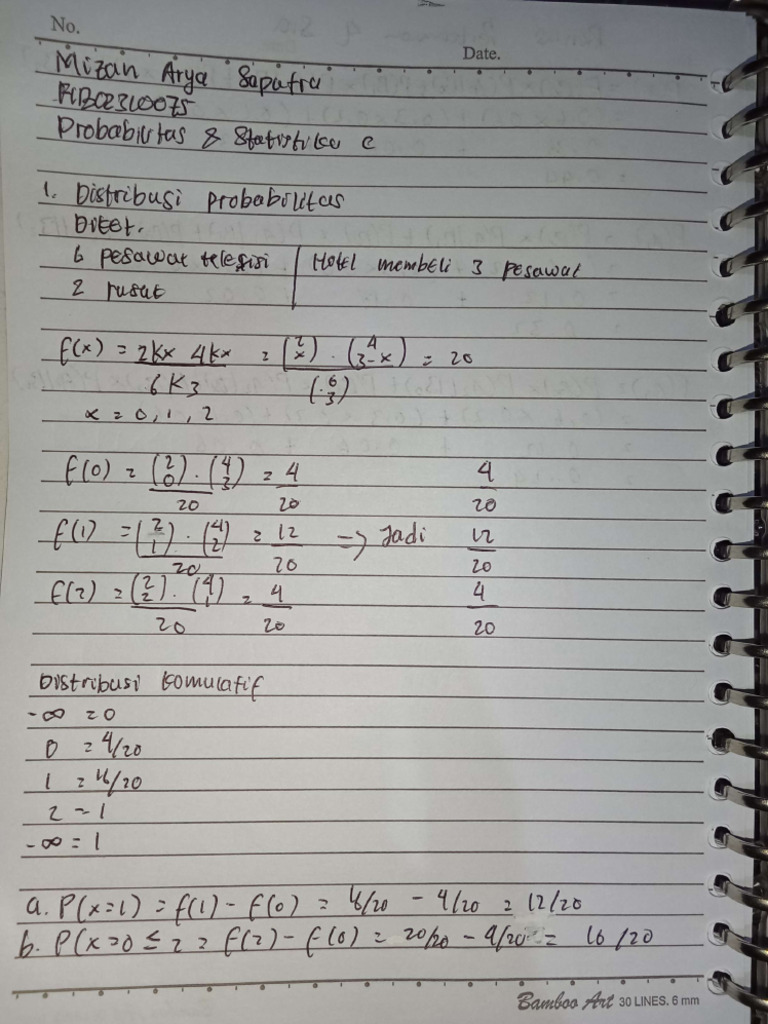 No.
Date.
Mizan Arya Saputra
Probabilitas & Statistika C
1. Distribusi probabilitas
Diket.
6 pesawat televisi | Hotel membeli 3 pesawat
2 rusak
f(x) = 2Kx 4Kx / 6K3 = (2 x) . (4 3-x) / (6 3) = 20
x = 0, 1, 2
f(0) = (2 0) . (4 3) / 20 = 4/20 4/20
f(1) = (2 1) . (4 2) / 20 = 12/20 → Jadi 12/20
f(2) = (2 2) . (4 1) / 20 = 4/20 4/20
Distribusi komulatif
-∞ = 0
0 = 4/20
1 = 16/20
2 = 1
-∞ = 1
a. P(x=1) = f(1) - f(0) = 16/20 - 4/20 = 12/20
b. P(x=0 ≤ 2 = f(2) - f(0) = 20/20 - 4/20 = 16/20
Bamboo Art 30 LINES. 6 mm